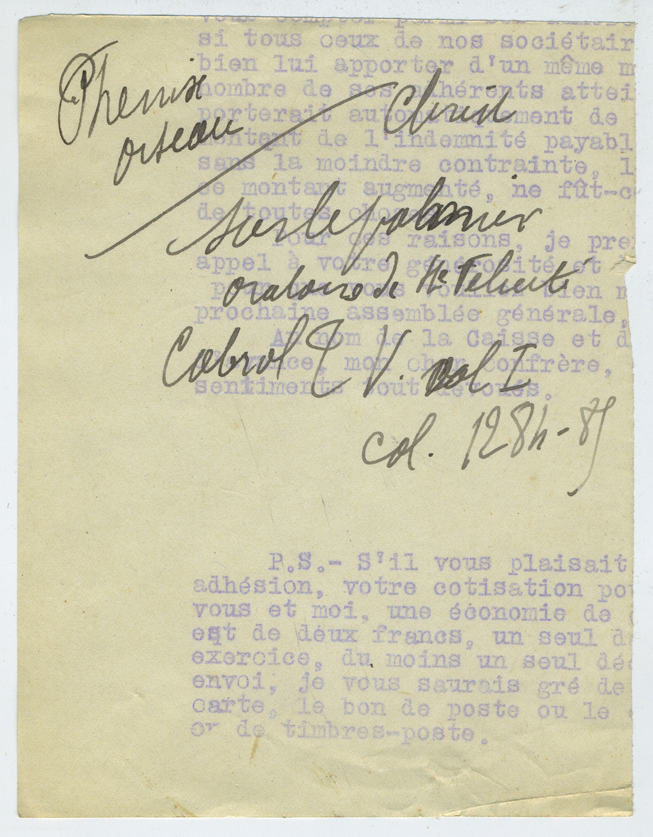 si tous ceux de nos sociétair
bien lui apporter d'un même m
Phenix
nombre de ses adhérents attei
Christ
oiseau
porterait automatiquement de
montant de l'indemnité payabl
sans la moindre contrainte, l
se montant augmenté, ne fût-c
de toutes
sur le palmier
Pour ces raisons, je pre
appel à votre générosité et
oratoire de Ste Félicité
vous bien m
prochaine assemblée générale,
Au nom de la Caisse et d
mon cher Confrère,
Cabrol T V. vol I
sentiments tout dévoués.
col. 1284-85
P.S.- S'il vous plaisait
adhésion, votre cotisation po
vous et moi, une économie de
est de deux francs, un seul d
exercice, du moins un seul déc
envoi, je vous saurais gré de
carte, le bon de poste ou le
or de timbres-poste.